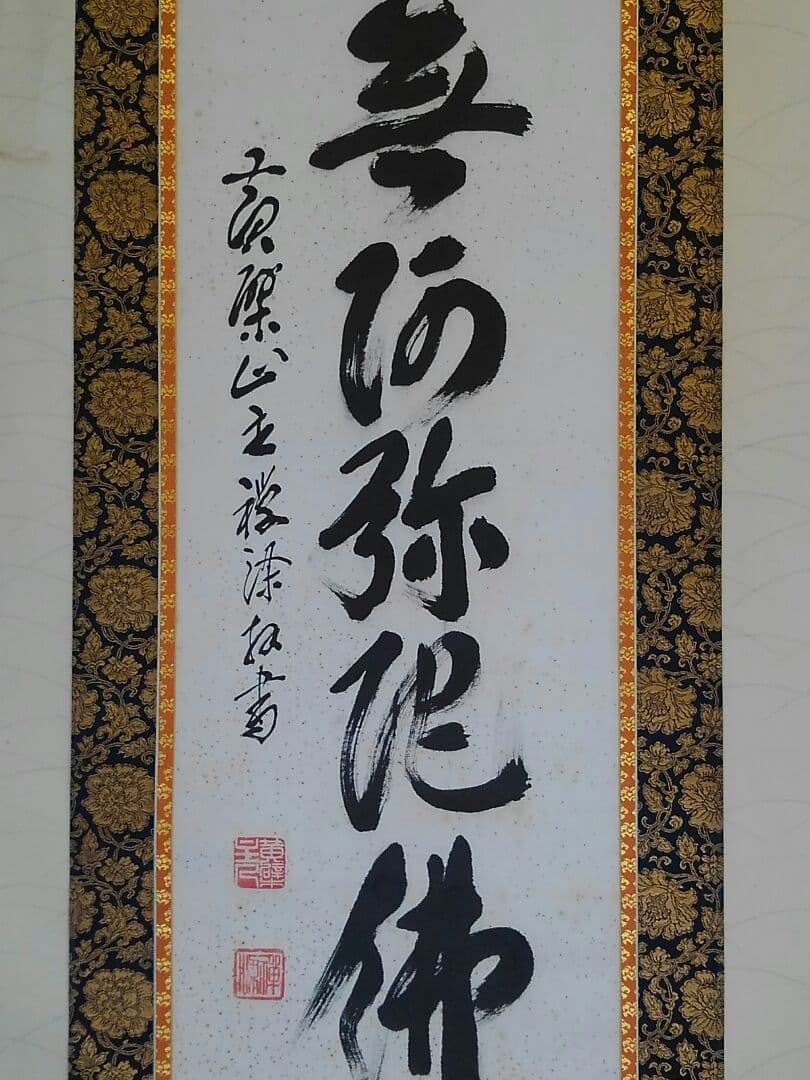 無阿弥陀佛
黄檗山主禅書